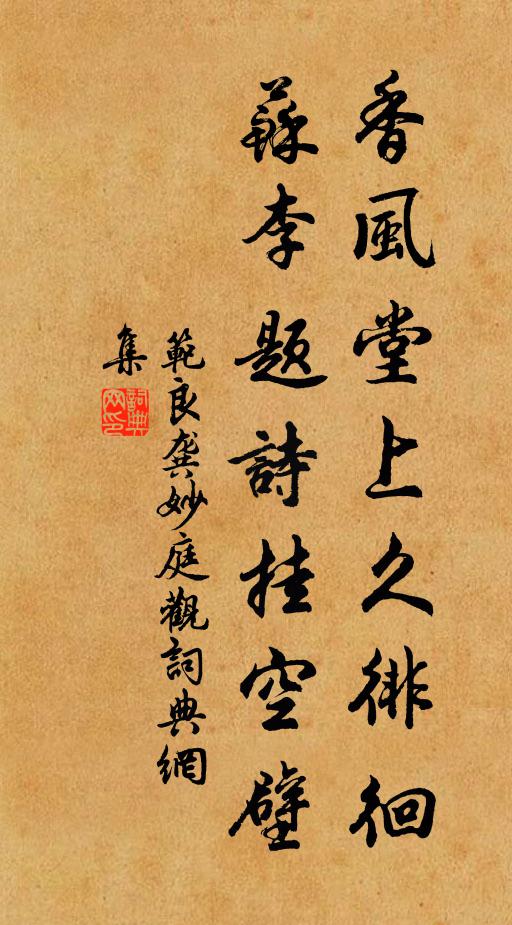 香風堂上久徘徊
蘇李题詩挂空壁
範良龔妙庭觀詞典網
集
詞典网印